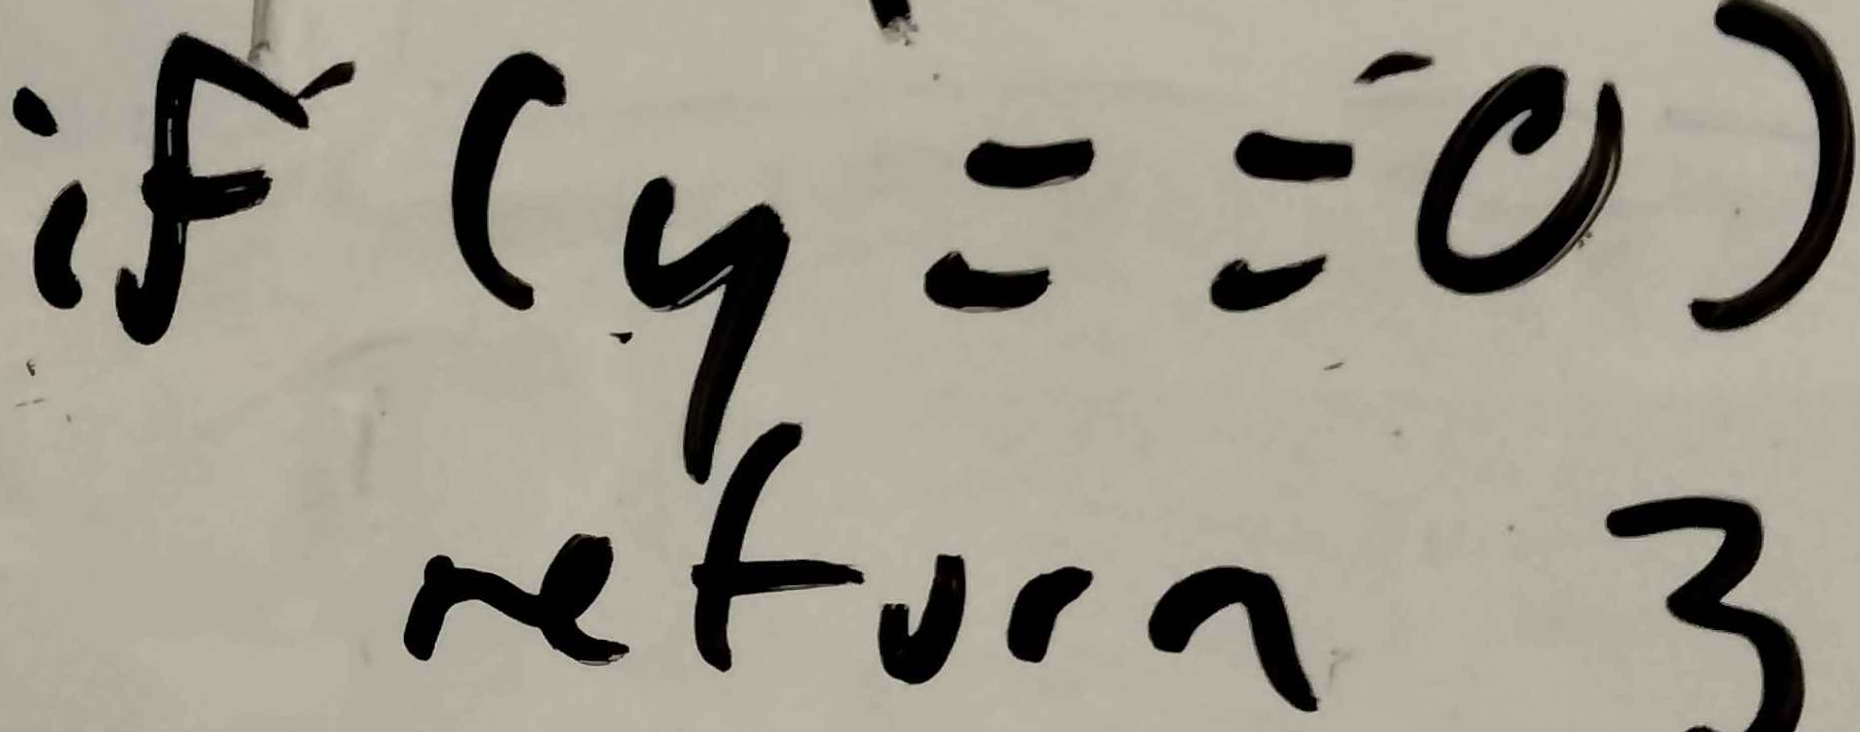 if (y == 0)
return 3